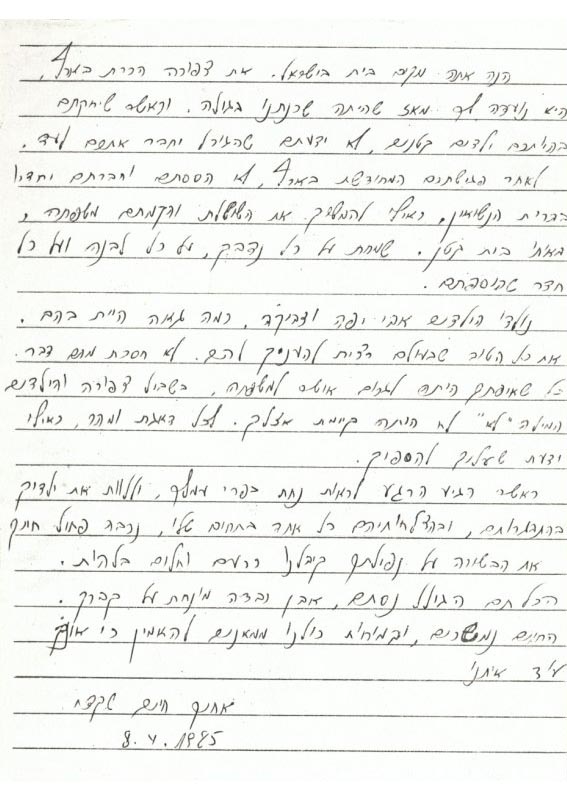 הנה אתה מקים בית בישראל. את צפורה הכרת בארץ,
היא נועדה לך מאז שהיתה שכנתנו בגולה. וכאשר שיחקתם
בהיותכם ילדים קטנים, לא ידעתם שהגורל יחבר אתכם לעד.
לאחר פגישתכם המחודשת בארץ, לא הססתם וחברתם יחדיו
בברית הנשואין, כאילו להמשיך את השושלת והקמתם משפחה,
בית קטן. שמחת על כל נדבך, על כל לבנה ועל כל
חדר שהוספתם.
נולדו הילדים אבי יפה וצביקה, כמה גאה היית בהם.
את כל הטוב שבעולם רצית להעניק להם. לא חסכת מהם דבר.
כל שאיפתך היתה לגרום אושר למשפחה, בשביל צפורה והילדים
המילה "לא" לא היתה קיימת אצלך. לכל דאגת ומהר, כאילו
ידעת שעליך להספיק.
כאשר הגיע הרגע לראות נחת בפרי עמלך, וללוות את ילדיך
בהתבגרותם, ובהצלחותיהם כל אחד בתחום שלו, נגדע פתיל חייך
את הבשורה על נפילתך קיבלנו כרעם וחלום בלהות.
הכל תם הגולל נסתם, אבן כבדה מונחת על קברך.
החיים נמשכים, ובמיוחד כולנו ממאנים להאמין כי אינך
עוד איתנו
אחיך חיים שקדי
8.4.1985